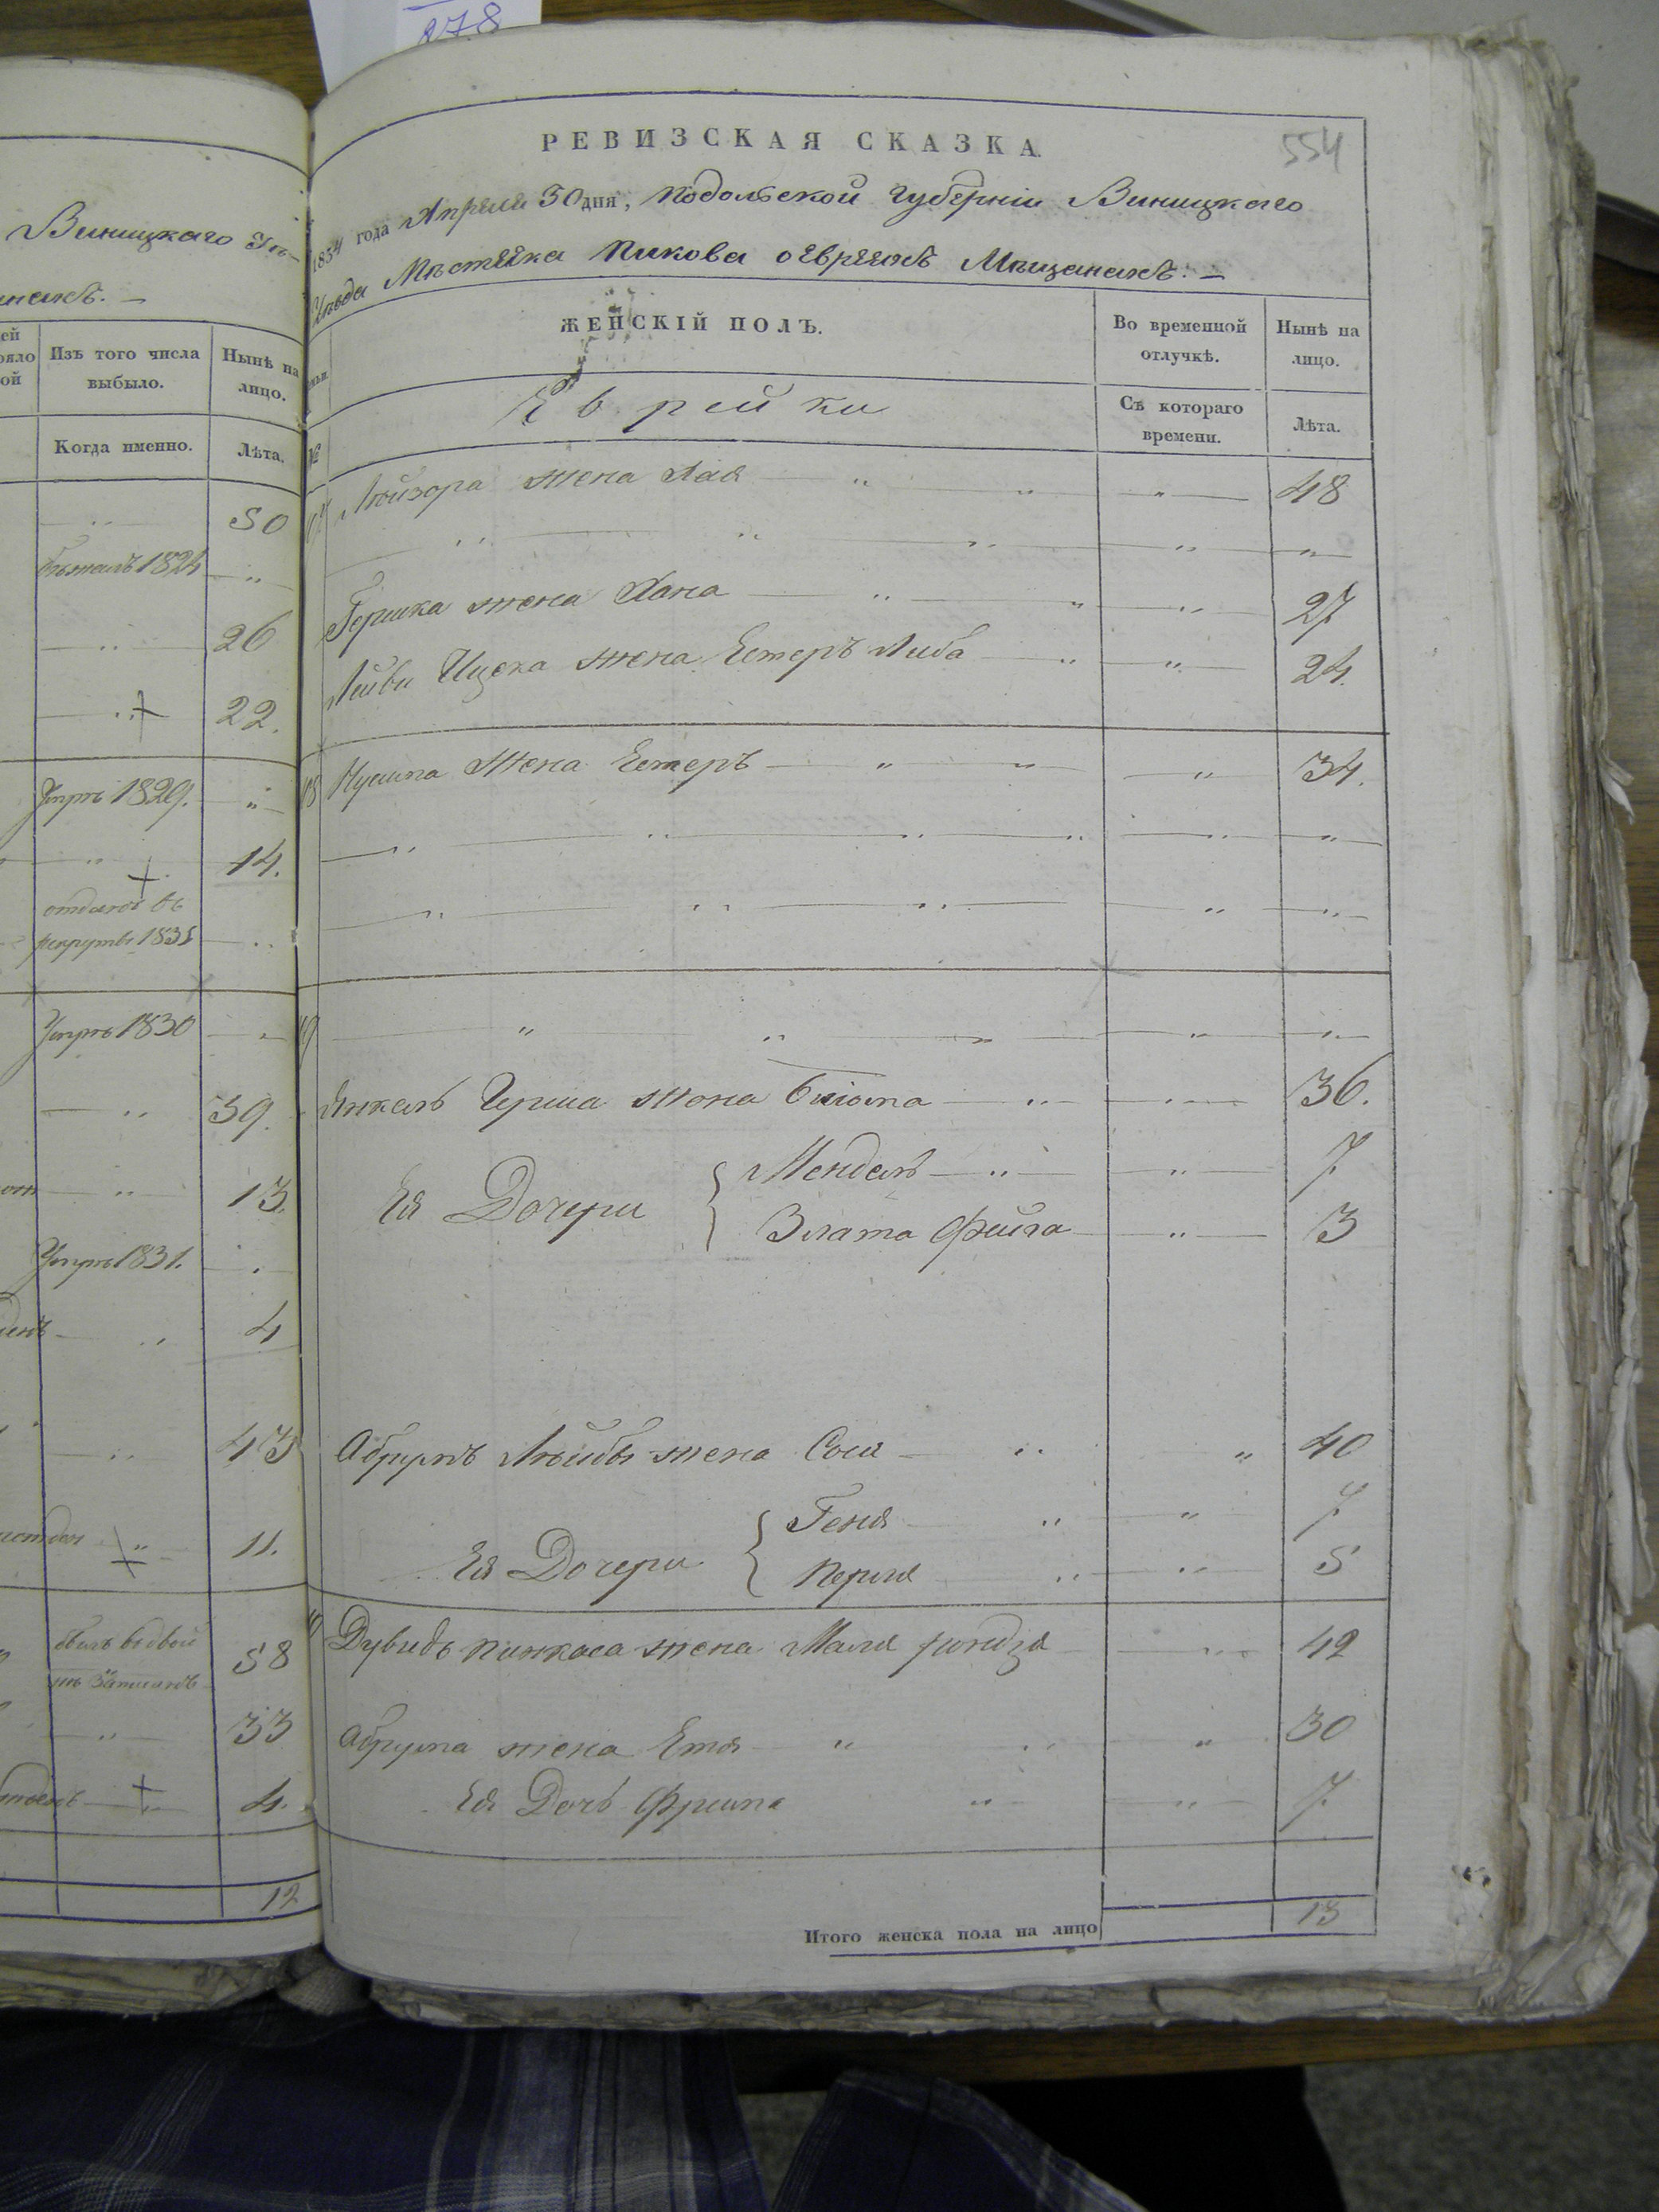 278
Виницкаго Уѣ-
Изъ того числа
выбыло.
Нынѣ на
лицо.
Когда именно.
Лѣта.
50
бѣжалъ 1824
26
22.
Умрѣ 1829.
14.
отданъ въ
рекруты 1831
Умрѣ 1830
39.
13.
Умрѣ 1831.
4
43
11.
58
33
4.
12
РЕВИЗСКАЯ СКАЗКА.
554
1834 года Апреля 30 дня, Подольской Губерніи Виницкаго
Уѣзда Мѣстечка Пикова оевреяхъ Мѣщанахъ. —
ЖЕНСКІЙ ПОЛЪ.
Во временной
отлучкѣ.
Нынѣ на
лицо.
Еврейки
Съ котораго
времени.
Лѣта.
№
Лейзора жена Хая 48
Гершка жена Хана 27
Лейви Ицска жена Естеръ Либа 24.
жена Естеръ 34.
Янкель Герша жена 36.
Ея Дочери
Мендель 7
Злата Фейга 3
Абрумъ Лейбы жена Сося 40
Ея Дочери
Геня 7
Перля 5
Дувидъ Пинкаса жена Маля 42
Абрума жена Етя 30
Ея Дочь Фрима 7
Итого женска пола на лицо 13